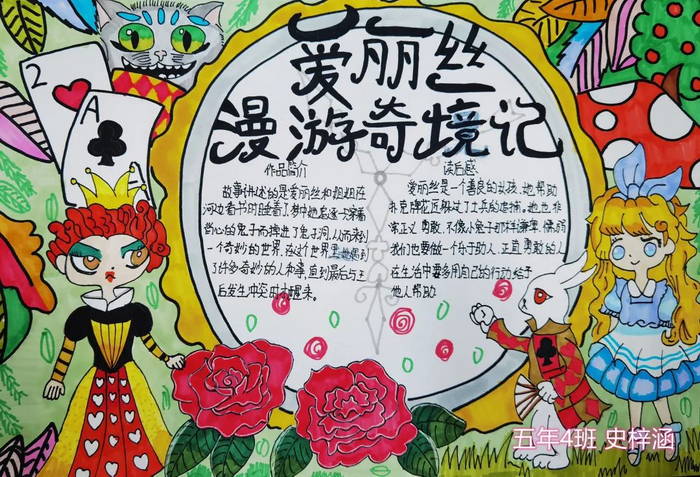 爱丽丝
漫游奇境记
作品简介
故事讲述的是爱丽丝和姐姐在
河边看书时睡着了,梦中她追逐一只穿着
背心的兔子而掉进了兔子洞,从而来到
一个奇妙的世界,在这个世界里她遇到
了许多奇妙的人和事,直到最后与王
后发生冲突时才醒来。
读后感
爱丽丝是一个善良的女孩,她帮助
扑克牌花匠躲过了士兵的追捕。她也非
常正义勇敢,不像小兔子那样
我们也要做一个乐于助人、正直勇敢的人
在生活中要多用自己的行动给予
他人帮助
2
A
五年4班 史梓涵